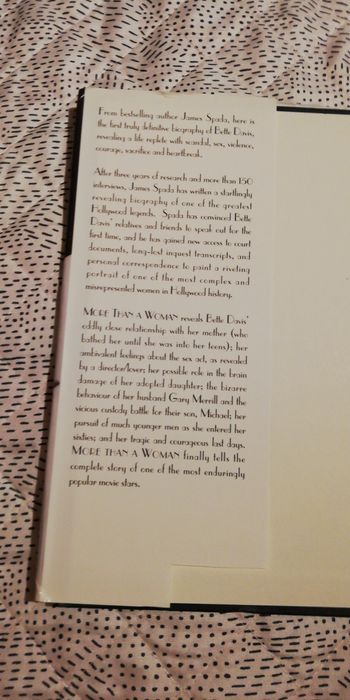 From bestselling author James Spada, here is
the first truly definitive biography of Bette Davis,
revealing a life replete with scandal, sex, violence,
courage, sacrifice and heartbreak.
After three years of research and more than 150
interviews, James Spada has written a startlingly
revealing biography of one of the greatest
Hollywood legends. Spada has convinced Bette
Davis' relatives and friends to speak out for the
first time, and he has gained new access to court
documents, long-lost inquest transcripts, and
personal correspondence to paint a riveting
portrait of one of the most complex and
misrepresented women in Hollywood history.
MORE THAN A WOMAN reveals Bette Davis'
oddly close relationship with her mother (who
bathed her until she was into her teens); her
ambivalent feelings about the sex act, as revealed
by a director/lover; her possible role in the brain
damage of her adopted daughter; the bizarre
behaviour of her husband Gary Merrill and the
vicious custody battle for their son, Michael; her
pursuit of much younger men as she entered her
sixties; and her tragic and courageous last days.
MORE THAN A WOMAN finally tells the
complete story of one of the most enduringly
popular movie stars.